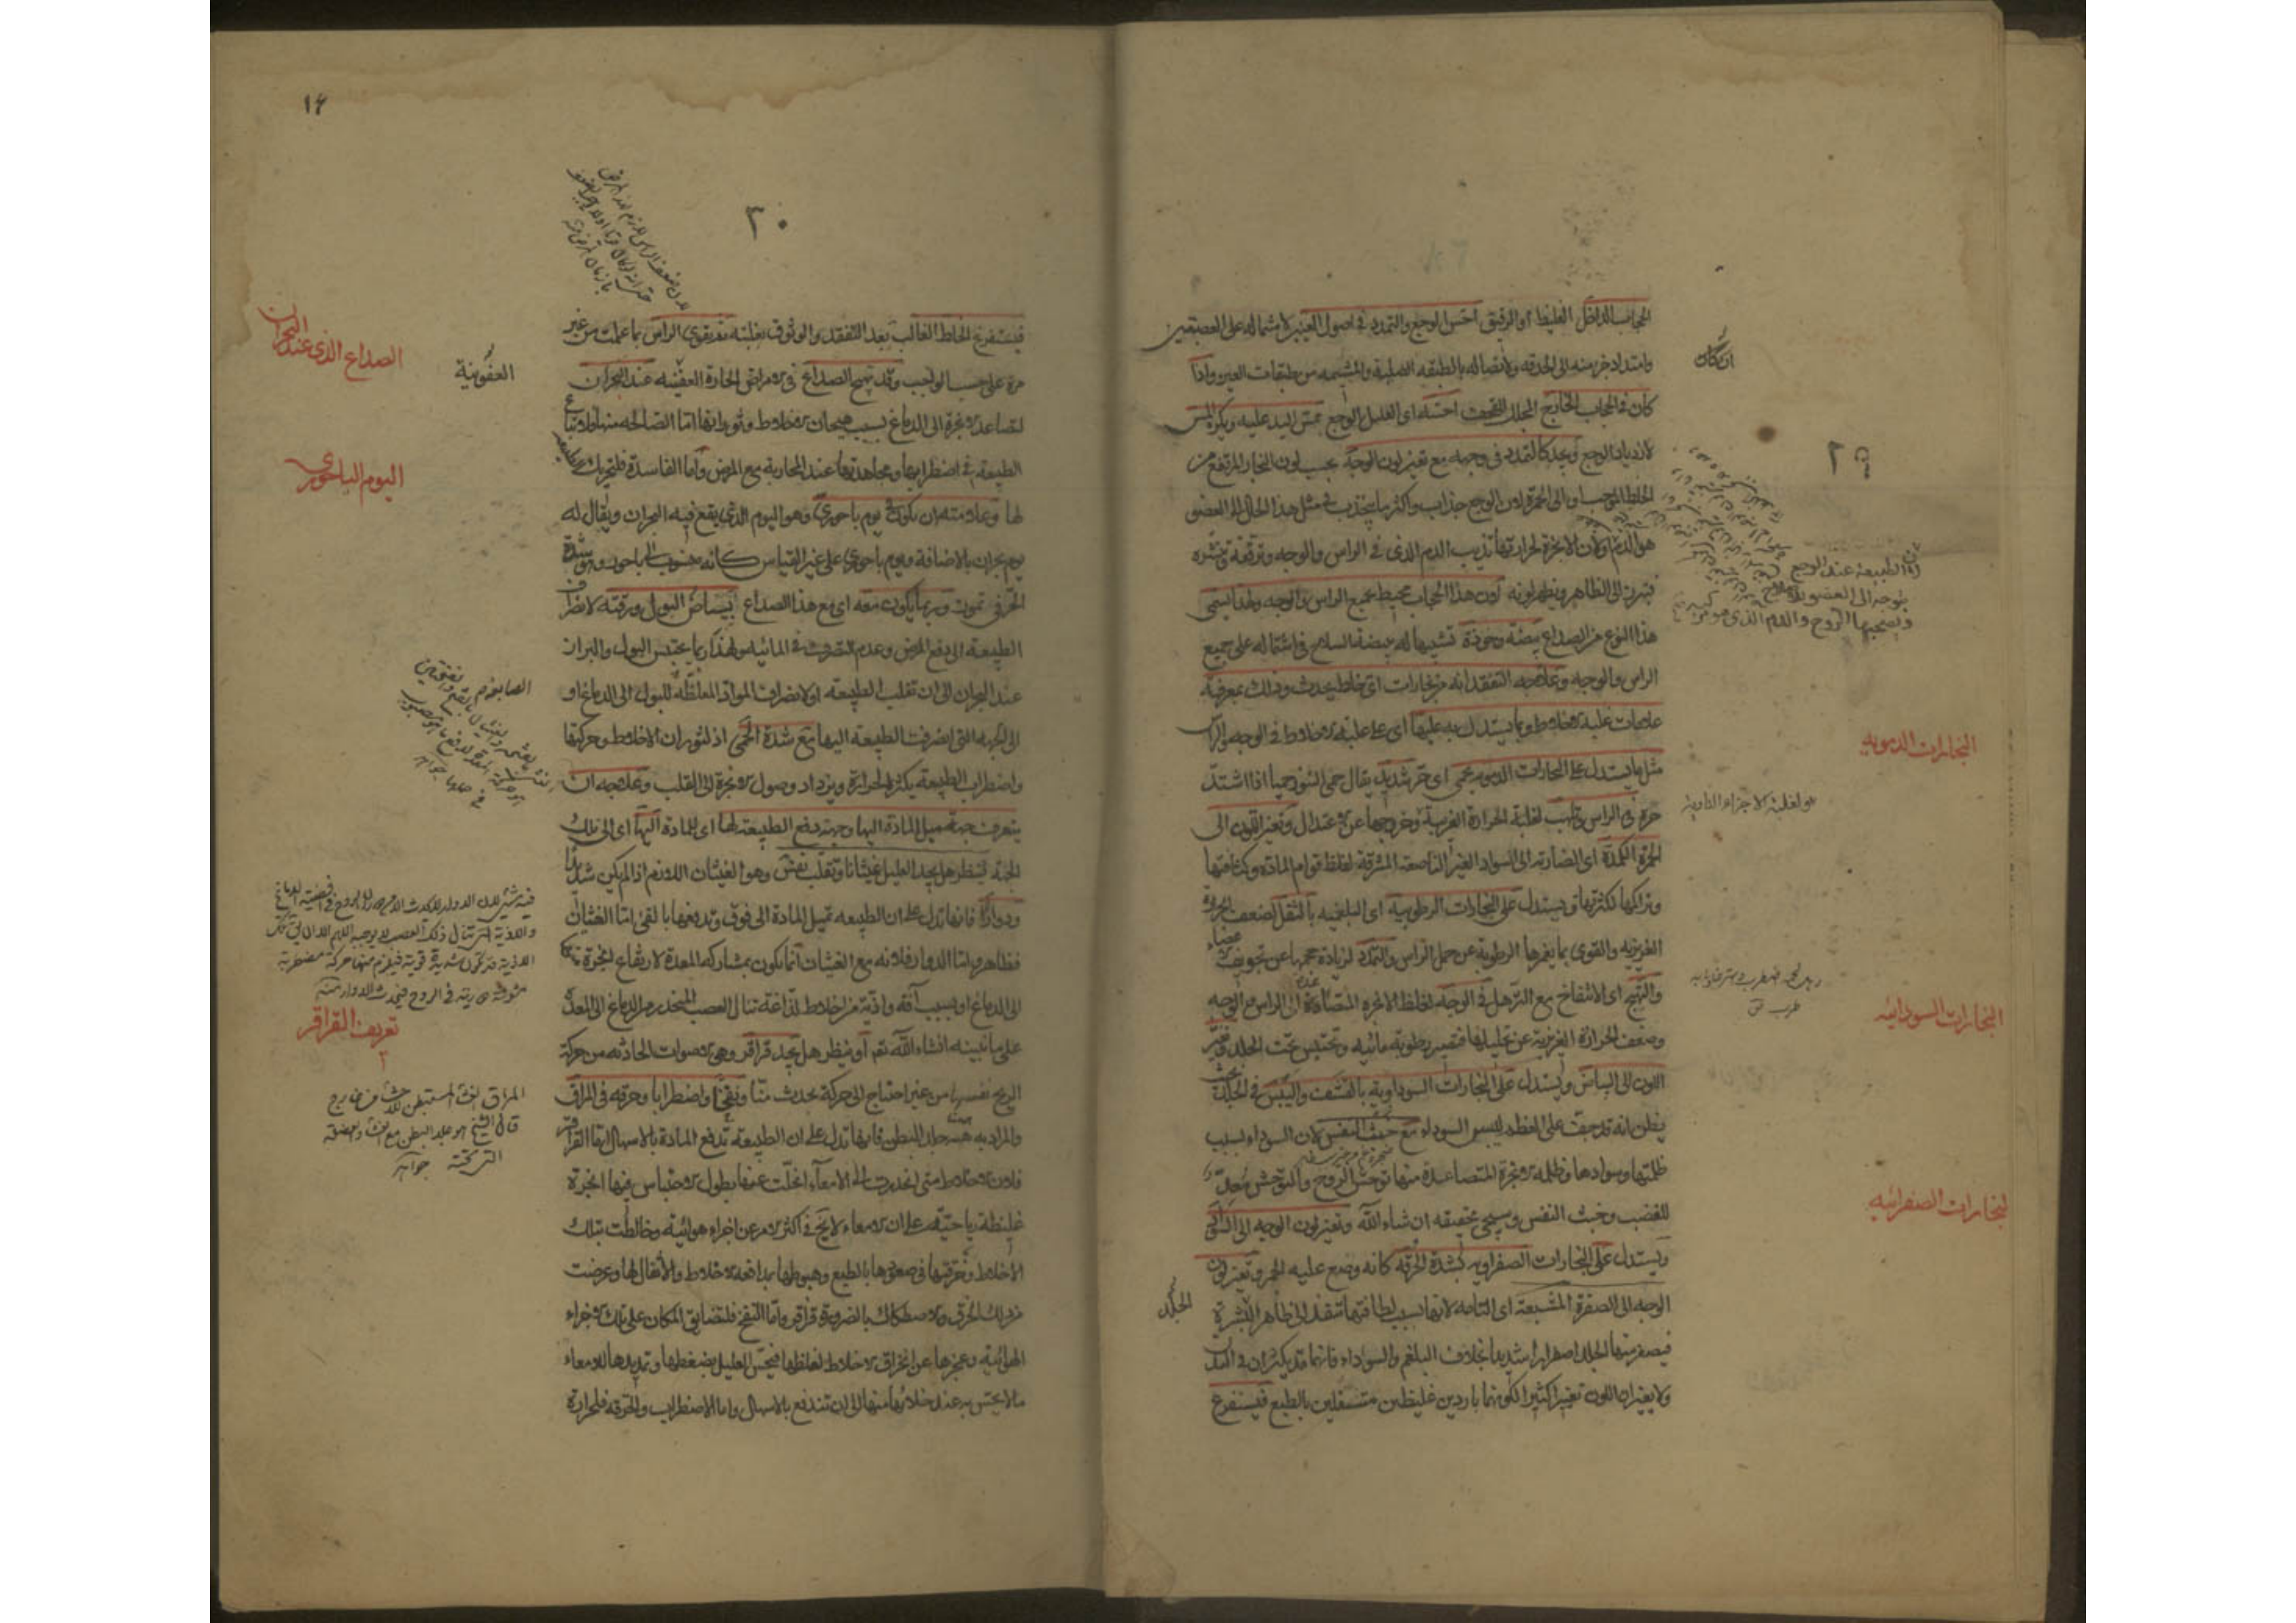 الحجاب الداخل الغليظ او الرقيق احس الوجع والتمدد في اصول العينين لاشتماله على العصبتين
وامتداد جزء منه الى الحدقة ولاتصاله بالطبقة الصلبة والمشيمية من طبقات العين واذا
كان في الحجاب الخارج المجلل للقحف احسه اى العليل الوجع بمس اليد عليه ويكره المس
لازدياد الوجع ويجد كالتمدد في وجهه مع تغير لون الوجه بحسب لون البخار المرتفع من
الخلط الموجب او الى الحمرة لان الوجع جذاب واكثر ما ينجذب في مثل هذا الحال الى العضو
هو الدم ولان الابخرة لحرارتها تذيب الدم الذى في الراس والوجه وترققه وتنشره
فيبرز الى الظاهر ويظهر لونه لان هذا الحجاب محيط بجميع الراس والوجه ولهذا يسمى
هذا النوع من الصداع بيضة وخوذة تشبيها له ببيضة السلاح في اشتماله على جميع
الراس والوجه وعلاجه التفقد انه من بخارات اى خلط يحدث وذلك بمعرفة
علامات غلبة الاخلاط وبما يستدل به عليها اى على غلبة الاخلاط في الوجه والراس
مثل ما يستدل على البخارات الدموية بحمى اى حر شديد يقال حمى التنور حميا اذا اشتد
حره في الراس وتلهب لغلبة الحرارة الغريبة وخروجها عن الاعتدال وتغير اللون الى
الحمرة الكمدة اى الضاربة الى السواد الغير الناصعة المشرقة لغلظ قوام المادة وكثافتها
وتراكمها لكثرتها ويستدل على البخارات الرطوبية اى البلغمية بالثقل لضعف الحرارة
الغريزية والقوى بما يغمرها الرطوبة عن حمل الراس والتمدد لزيادة حجمها عن تجويف
والتهيج اى الانتفاخ مع الترهل في الوجه لغلظ الابخرة المتصاعدة الى الراس والوجه
وضعف الحرارة الغريزية عن تحليلها فتصير رطوبة مائية وتحتبس تحت الجلد وتغير
اللون الى البياض ويستدل على البخارات السوداوية بالقشف واليبس في الجلد بحيث
يظن انه قد جف على العظم ليبس السوداء مع خبث النفس لان السوداء بسبب
ظلمتها وسوادها وظلمة الابخرة المتصاعدة منها توحش الروح والتوحش معد
للغضب وخبث النفس وسيجيء تحقيقه ان شاء الله وتغير لون الوجه الى السواد
ويستدل على البخارات الصفراوية بشدة الحرقة كانه وضع عليه الجمر وتغير لون
الوجه الى الصفرة المشبعة اى التامة لانها بسبب لطافتها تنفذ الى ظاهر البشرة
فيصفر منها الجلد اصفرارا شديدا بخلاف البلغم والسوداء فانهما قد يكثران في البدن
ولا يغيران اللون تغيرا كثيرا لكونهما باردين غليظين متسفلين بالطبع فيستفرغ
ان كان
٢٩
لان الطبيعة عند الوجع
يتوجه الى العضو
ويصحبها الروح والدم الذى هو مركبه
البخارات الدموية
هو لغلبة الاجزاء النارية
البخارات السوداوية
البخارات الصفراوية
الجلد
١٤
٣٠
فيستفرغ الخلط الغالب بعد التفقد والوثوق بغلبته ثم يقوى الراس بما علمت من غير
مرة على حسب الواجب وقد يهيج الصداع في الامراض الحارة العفنية عند البحران
لتصاعد الابخرة الى الدماغ بسبب هيجان الاخلاط وثورانها اما الصالحة منها فلاتباع
الطبيعة في اضطرابها ومجاهدتها عند المحاربة مع المرض واما الفاسدة فلتحريك الطبيعة
لها وعلامته ان يكون في يوم باحورى وهو اليوم الذى يقع فيه البحران ويقال له
يوم بحران بالاضافة ويوم باحورى على غير القياس كانه منسوب الى باحور وهو شدة
الحر في تموز وربما يكون معه اى مع هذا الصداع بياض البول ورقته لانصراف
الطبيعة الى دفع المرض وعدم التصرف في المائية ولهذا ربما يحتبس البول والبراز
عند البحران الى ان تغلب الطبيعة او لانصراف المواد المغلظة للبول الى الدماغ او
الى الجهة التى انصرفت الطبيعة اليها مع شدة الحمى اذ لثوران الاخلاط وحركتها
واضطراب الطبيعة يكثر الحرارة ويزداد وصول الابخرة الى القلب وعلاجه ان
يتعرف جهة ميل المادة اليها وجهة دفع الطبيعة لها اى للمادة اليها اى الى تلك
الجهة فينظر هل يجد العليل غثيانا وتقلب نفس وهو الغثيان اللازم اذا لم يكن شديدا
ودوارا فانها تدل على ان الطبيعة تميل المادة الى فوق وتدفعها بالقى اما الغثيان
فظاهر واما الدوار فلانه مع الغثيان انما يكون بمشاركة المعدة لارتفاع ابخرة منها
الى الدماغ او بسبب آفة واذية من اخلاط لذاعة تنال العصب المنحدر من الدماغ الى المعدة
على ما نبينه انشاء الله تعم او ينظر هل يجد قراقر وهى الاصوات الحادثة من حركة
الريح نفسها من غير احتياج الى حركة تحدث منا ونفخا واضطرابا وحرقة في المراق
والمراد به هنا جلد البطن فانها تدل على ان الطبيعة تدفع المادة بالاسهال اما القراقر
فلان الاخلاط متى انحدرت الى الامعاء انحلت عنها بطول الاحتباس فيها ابخرة
غليظة رياحية على ان الامعاء لا يخ في اكثر الامر عن اجزاء هوائية ومخالطت بتلك
الاخلاط وخرقتها في صعودها بالطبع وهبوطها بمدافعة الاخلاط والاثقال لها وعرضت
من ذلك الخرق والاصطكاك بالضرورة قراقر واما النفخ فلتضايق المكان على تلك الاجزاء
الهوائية وعجزها عن انخراق الاخلاط لغلظها فيحس العليل بضغطها وتمديدها للامعاء
ما لا يحس به عند خلائها منها الى ان تندفع بالاسهال واما الاضطراب والحرقة فلحرارة
الصداع الذى عند البحران
العفونية
اليوم الباحورى
تعريف القراقر